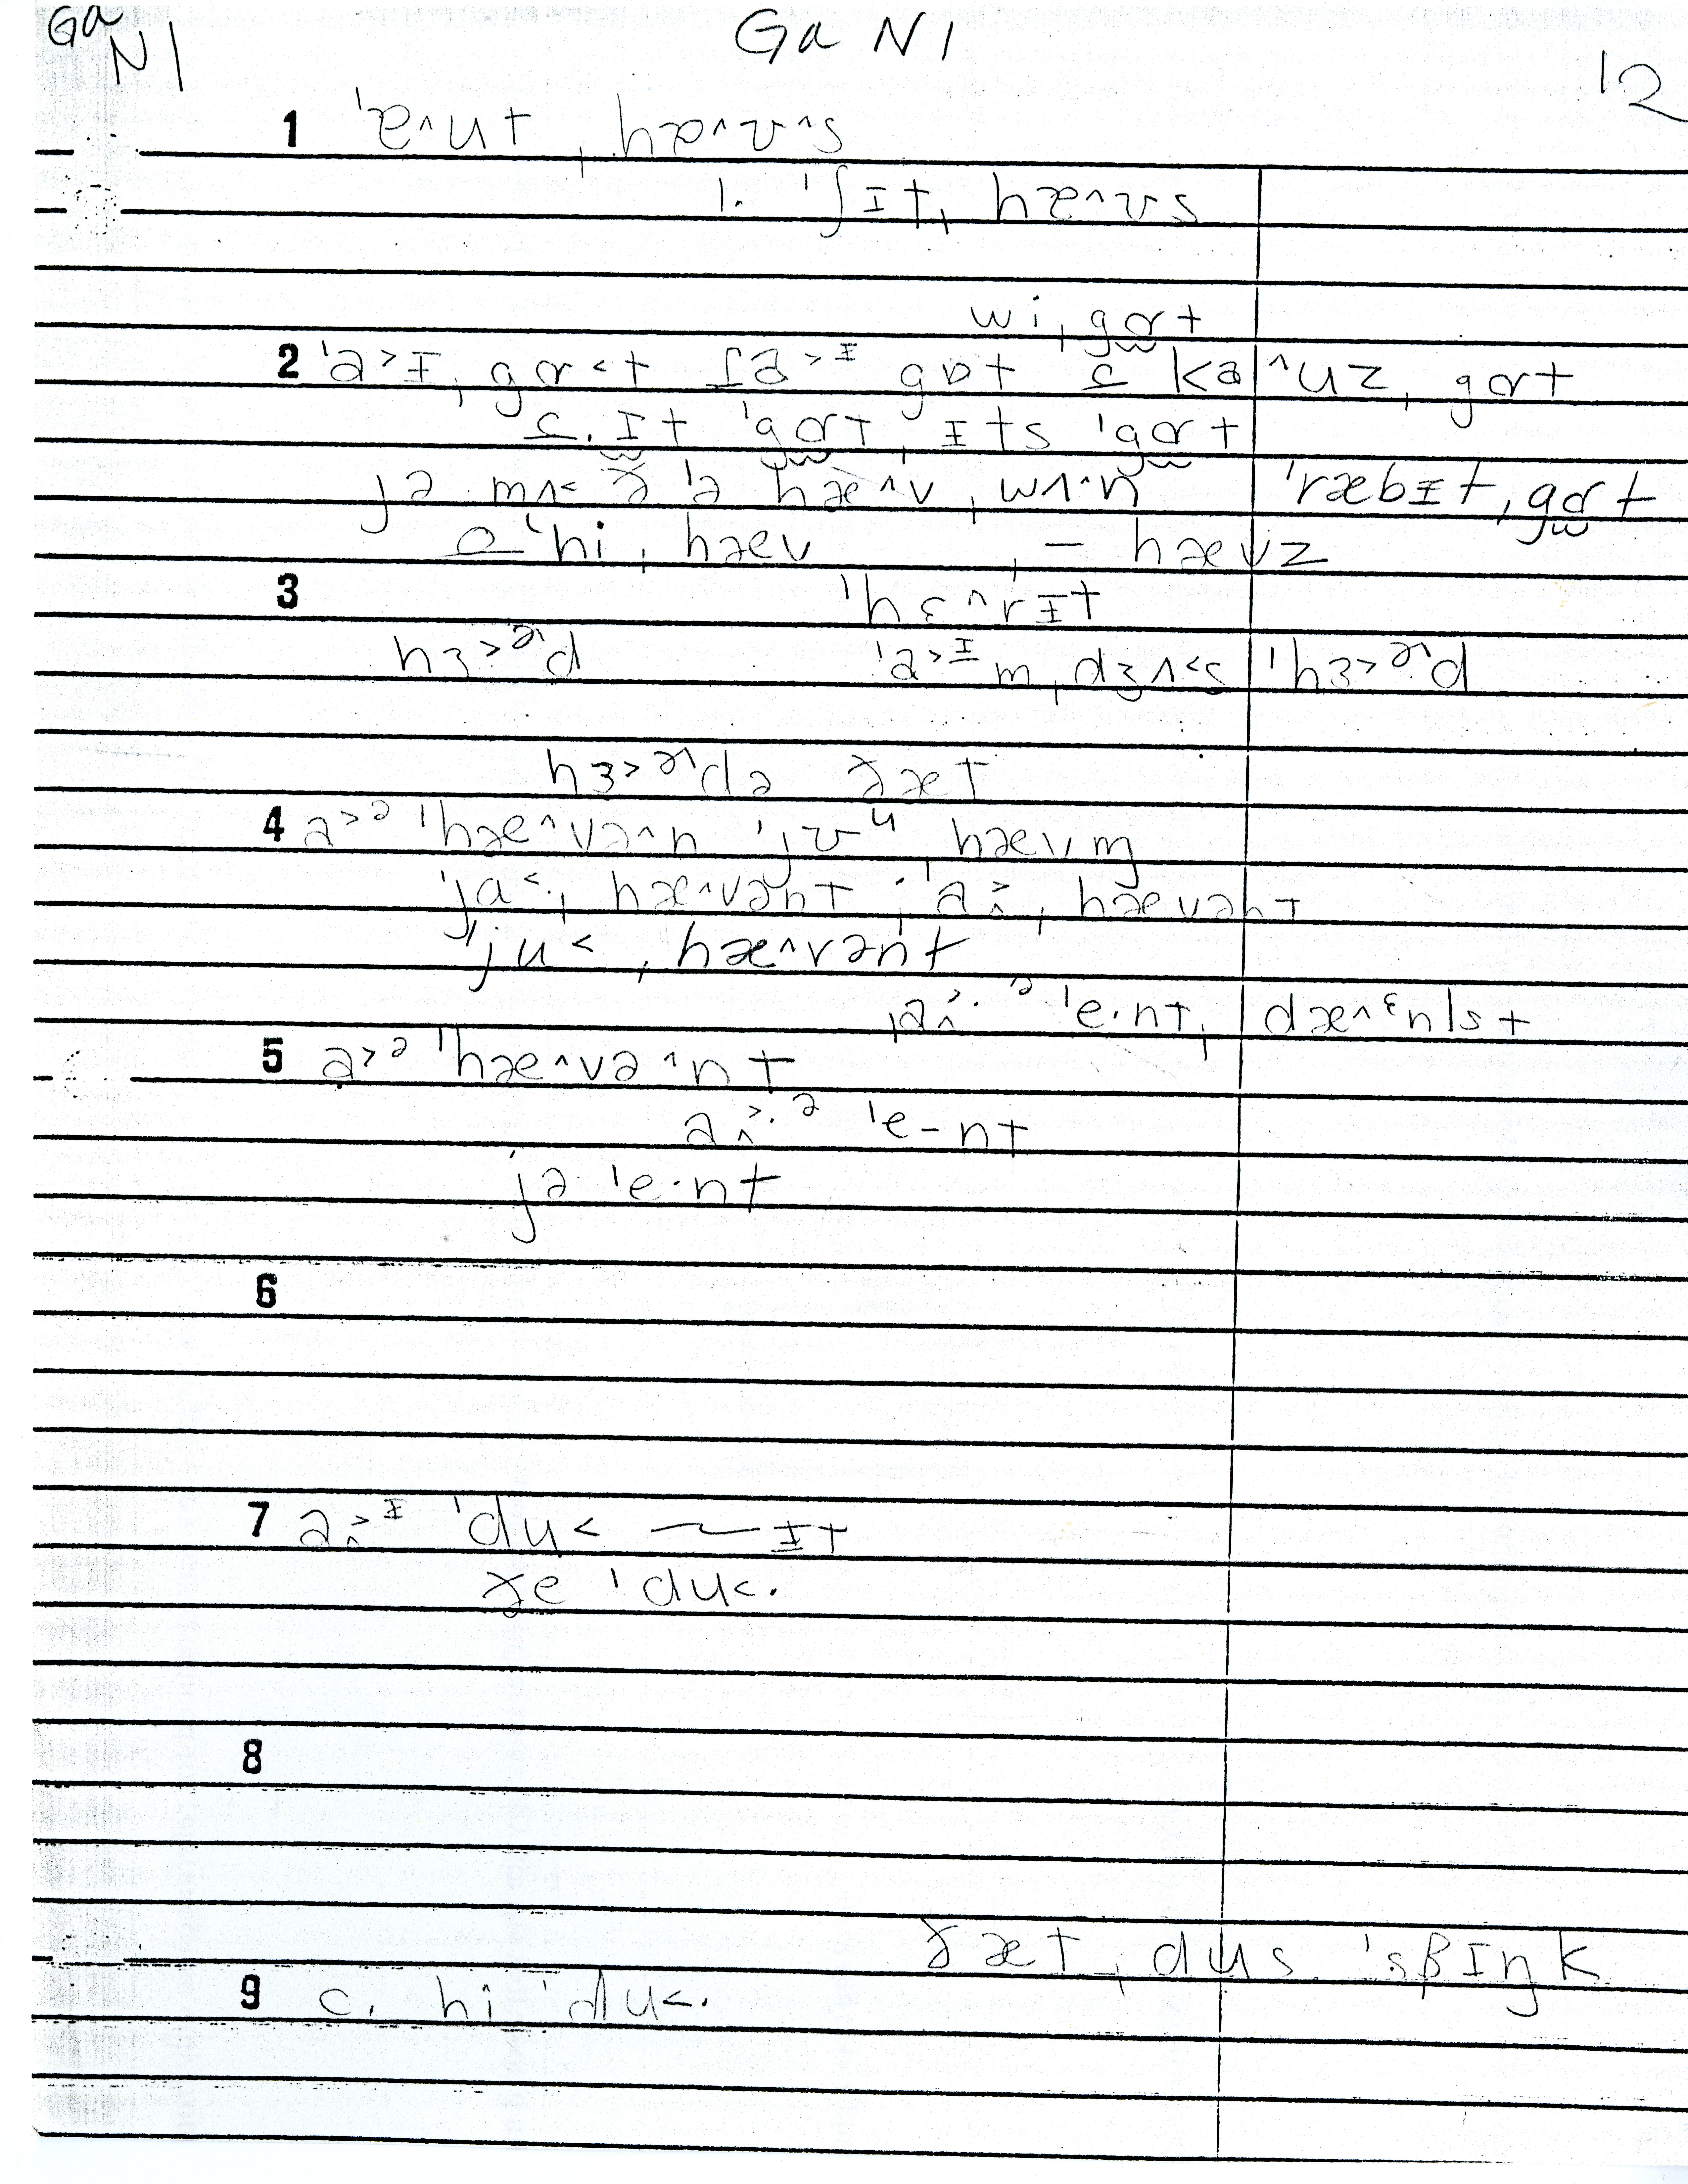 Ga N1
Ga N1
12
1 ˈɐ^ut, hæ^ʊ^s
1. ˈʃɪt, hæ^ʊs
wi, gɒt
2 ˈa>ɪ, gɒ<t ʃa>ɪ gɒt c ka^uz, gɒt
c. ɪt ˈgɒt, ɪts ˈgɒt
jə mʌ< ð ˈə hæ^v, wʌ^n ˈræbɪt, gɒt
ˈhi, hæv, – hævz
3 ˈhɛ^rɪt
hɜ>ɚd ˈa>ɪm, dʒʌ<s ˈhɜ>ɚd
hɜ>ɚdə ðæt
4 a>ə ˈhæ^və^n ˈjʊu hævm
ˈja<, hæ^vənt, ˈa>, hævənt
ˈju<, hæ^vənt
ˌa>·ə ˈe·nt, dæ^ɛnlst
5 a>ə ˈhæ^və^nt
a>·ə ˈe-nt
jə ˈe·nt
6
7 a>ɪ ˈdu< ~ɪt
ðe ˈdu<.
8
ðæt, dus ˈsβɪŋk
9 c. hi ˈdu<.